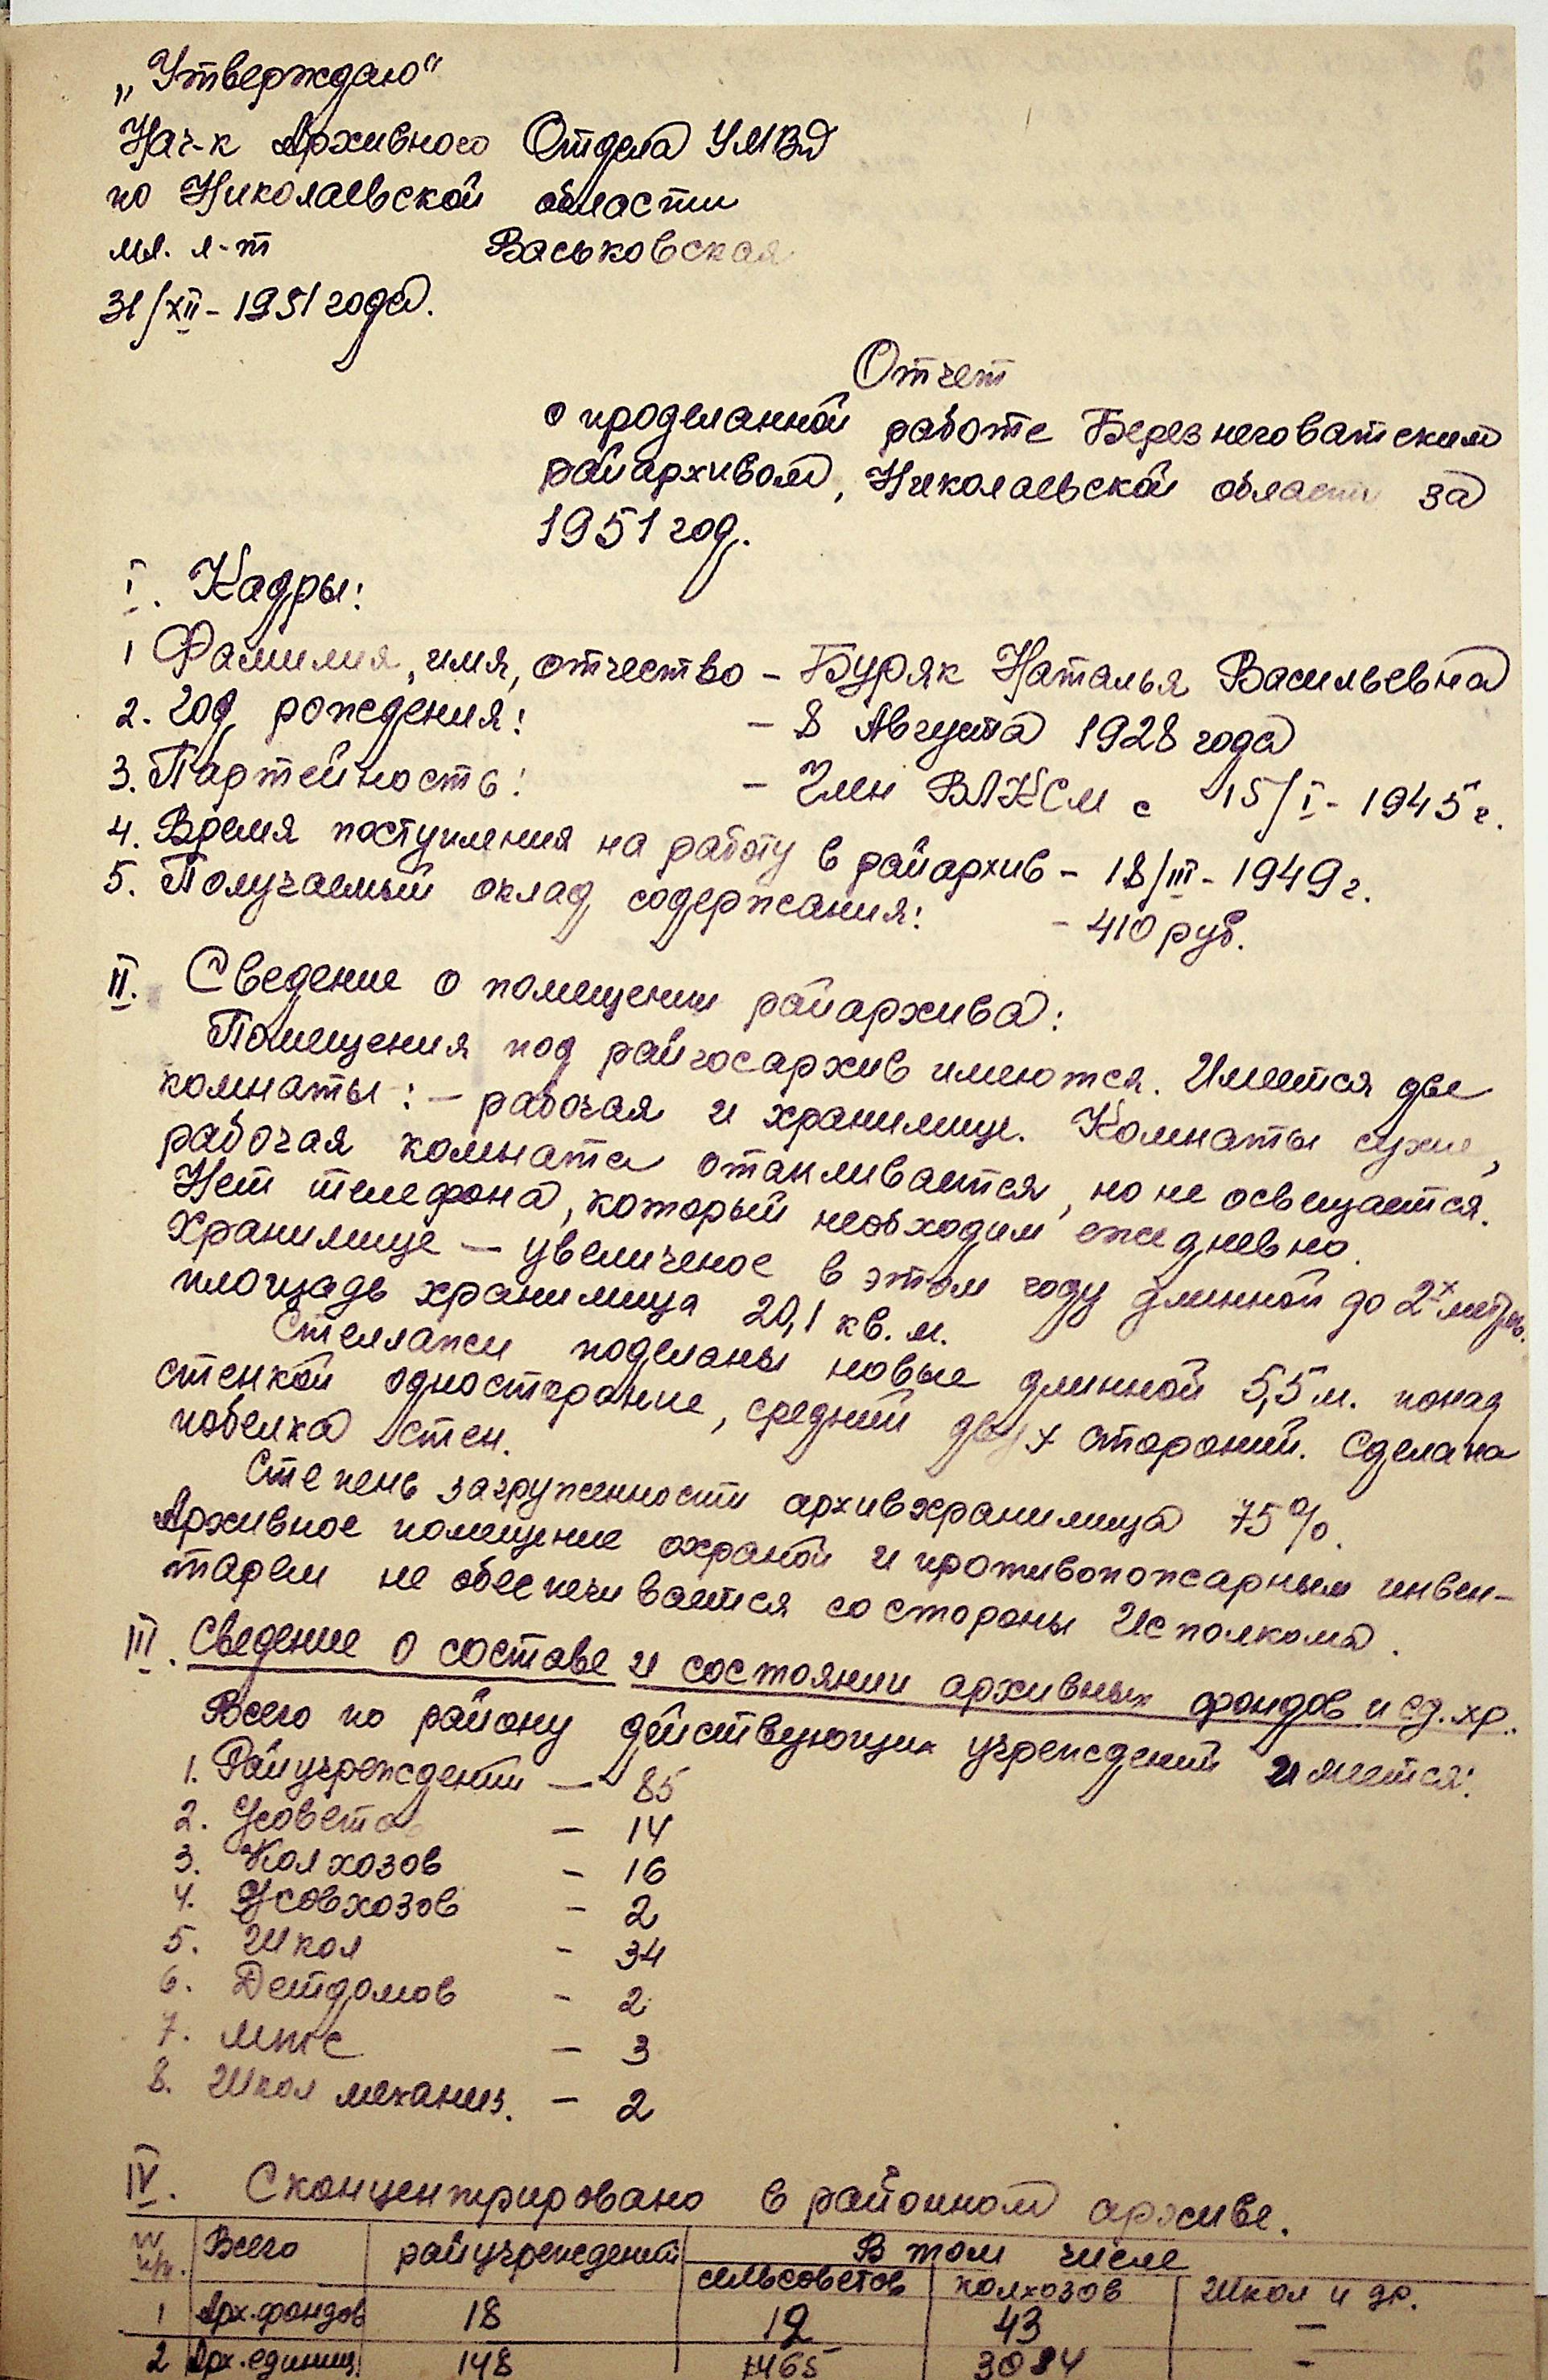 „Утверждаю“
Нач-к Архивного Отдела УМВД
по Николаевской области
мл. л-т Васьковская
31/XII - 1951 года.
Отчет
о проделанной работе Березнеговатским
райархивом, Николаевской области за
1951 год.
I. Кадры:
1 Фамилия, имя, отчество - Буряк Наталья Васильевна
2. год рождения: - 8 Августа 1928 года
3. Партейность: - Член ВЛКСМ с 15/I - 1945 г.
4. Время поступления на работу в райархив - 18/III - 1949 г.
5. Получаемый оклад содержания: - 410 руб.
II. Сведение о помещении райархива:
Помещения под райгосархив имеются. Имеется две
комнаты: - рабочая и хранилище. Комнаты сухие,
рабочая комната отапливается, но не освещается.
Нет телефона, который необходим ежедневно.
Хранилище - увеличеное в этом году длинной до 2х метров.
площадь хранилища 20,1 кв. м.
Стеллажи поделаны новые длинной 5,5 м. понад
стенкой односторание, средний двух стороний. Сделана
побелка стен.
Степень загруженности архивхранилища 75%.
Архивное помещение охраной и противопожарным инвен-
тарем не обеспечивается со стороны Исполкома.
III. Сведение о составе и состоянии архивных фондов и ед. хр.
Всего по району действующих учреждений имеется:
1. Райучреждений - 85
2. С/советов - 14
3. Колхозов - 16
4. Совхозов - 2
5. Школ - 34
6. Детдомов - 2
7. МТС - 3
8. Школ механиз. - 2
IV. Сконцентрировано в районном архиве.
№ п/п. Всего райучреждений В том числе
сельсоветов колхозов Школ и др.
1 Арх. фондов 18 12 43 -
2 Арх. единиц 148 1465 3084 -